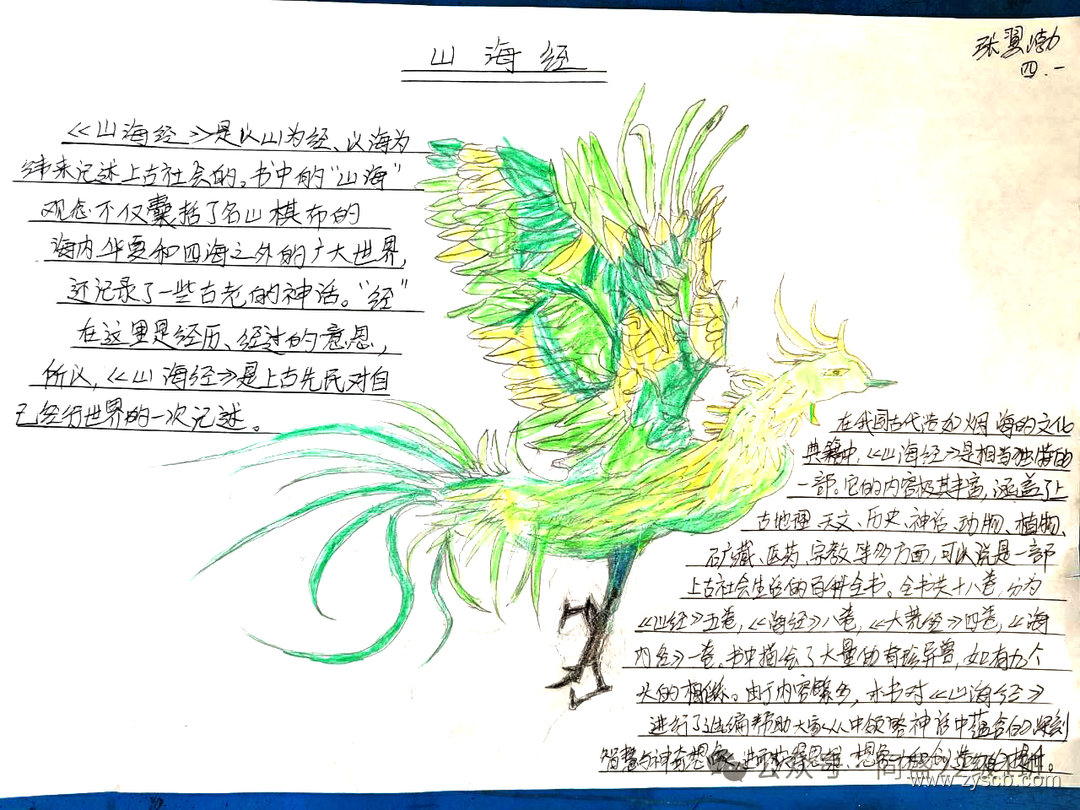 山海经
张翼渤
四.一
《山海经》是以山为经、以海为
纬来记述上古社会的。书中的“山海”
观念不仅囊括了名山棋布的
海内华夏和四海之外的广大世界,
还记录了一些古老的神话。“经”
在这里是经历、经过的意思,
所以,《山海经》是上古先民对自
己经行世界的一次记述。
在我国古代浩如烟海的文化
典籍中,《山海经》是相当独特的
一部。它的内容极其丰富,涵盖了上
古地理、天文、历史、神话、动物、植物、
矿藏、医药、宗教等多方面,可以说是一部
上古社会生活的百科全书。全书共十八卷,分为
《山经》五卷,《海经》八卷,《大荒经》四卷,《海
内经》一卷。书中描绘了大量的奇珍异兽,如有九个
头的相柳。由于内容繁多,本书对《山海经》
进行了选编帮助大家从中领略神话中蕴含的深刻
智慧与神奇想象,进而获得思维、想象和创造的提升。
公众号
www.zyscb.com